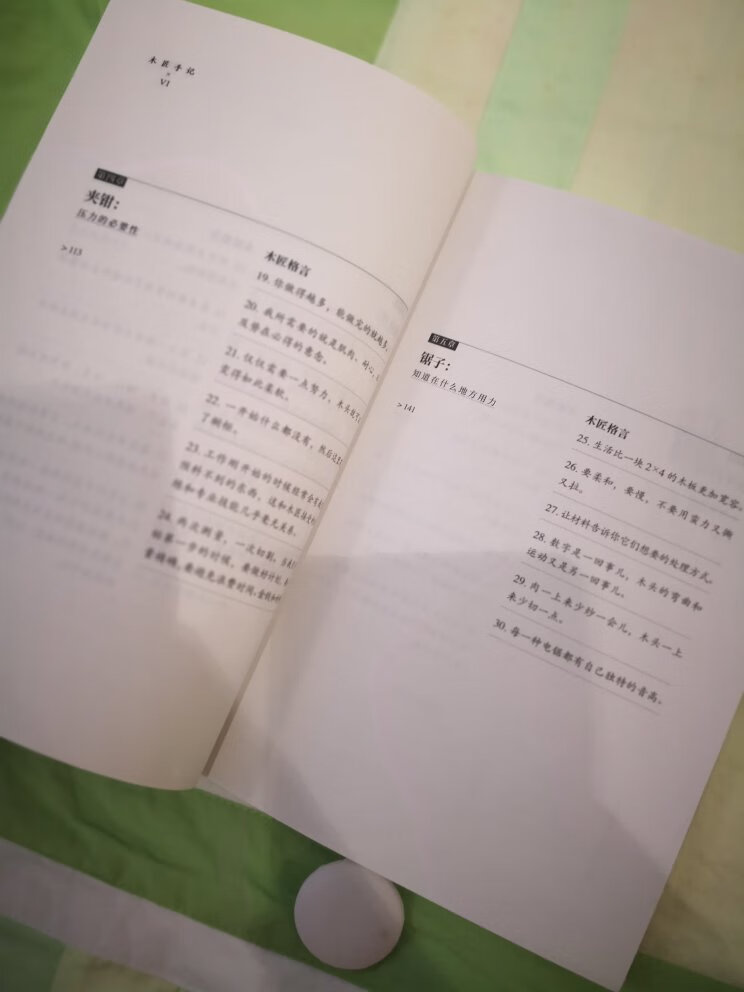 木匠手记
×
VI
第四章
夹钳：
压力的必要性
>113
木匠格言
19. 你做得越多，能做完的就越多。
20. 我所需要的就是肌肉、耐心、
及势在必得的意念。
21. 仅仅需要一点努力，木头就
变得如此柔软。
22. 一开始什么都没有，然后
了橱柜。
23. 工作刚开始的时候经常会
预料不到的东西，这和木匠
想和专业技能几乎毫无关系。
24. 两次测量，一次切割。
始第一步的时候，要做好计划，
要避免浪费时间、金钱和
第五章
锯子：
知道在什么地方用力
>141
木匠格言
25. 生活比一块2×4的木板更加宽容。
26. 要柔和，要慢，不要用蛮力又
又拉。
27. 让材料告诉你它们想要的处理方式。
28. 数字是一回事儿，木头的弯曲和
运动又是另一回事儿。
29. 肉一上来少炒一会儿，木头一上
来少切一点。
30. 每一种电锯都有自己独特的音高。